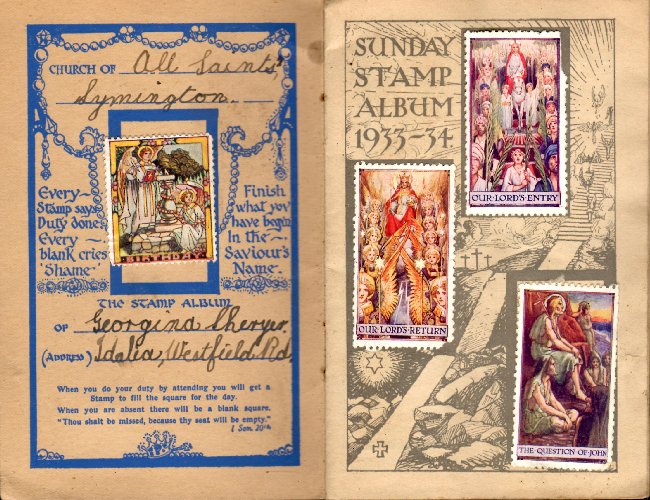 CHURCH OF All Saints'
Symington.
Every
Stamp says
Duty done;
Every
blank cries
'Shame'
BIRTHDAY
Finish
what you
have begun
In the
Saviour's
Name
THE STAMP ALBUM
OF Georgina
(ADDRESS) Idalia, Westfield Rd,
When you do your duty by attending you will get a
Stamp to fill the square for the day.
When you are absent there will be a blank square.
"Thou shalt be missed, because thy seat will be empty."
I Sam. 20th
SUNDAY
STAMP
ALBUM
1933-34
OUR LORD'S ENTRY
OUR LORD'S RETURN
THE QUESTION OF JOHN